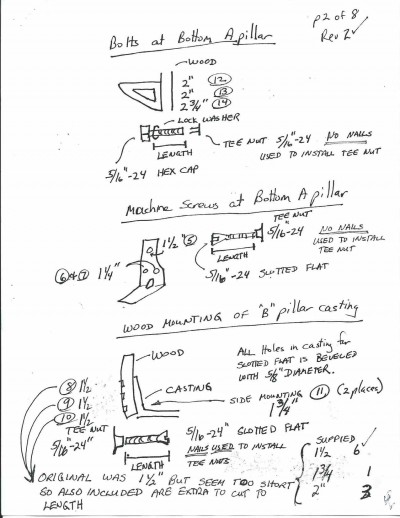 p 2 of 8
Rev 2 ✓
Bolts at Bottom A pillar
WOOD
2" (12)
2" (13)
2 3/4" (14)
LOCK WASHER
TEE NUT 5/16"-24 NO NAILS
USED TO INSTALL TEE NUT
LENGTH
5/16"-24 HEX CAP
Machine Screws at Bottom A pillar
TEE NUT
1 1/2" (5)
5/16"-24 NO NAILS
USED TO INSTALL
TEE NUT
LENGTH
(6)+(7) 1 1/4"
5/16"-24 SLOTTED FLAT
WOOD MOUNTING OF "B" pillar casting
WOOD
ALL Holes in casting for
SLOTTED FLAT IS BEVELED
WITH 5/8" DIAMETER.
(8) 1 1/2
CASTING
(9) 1 1/2
SIDE MOUNTING (11) (2 places)
1 3/4"
(10) 1 1/2
TEE NUT
5/16-24"
5/16"-24 SLOTTED FLAT
NAILS USED TO INSTALL
TEE NUTS
LENGTH
SUPPIED ✓
1 1/2 6
1 3/4 1
2"
ORIGINAL WAS 1 1/2" BUT SEEM TOO SHORT
SO ALSO INCLUDED ARE EXTRA TO CUT TO
LENGTH